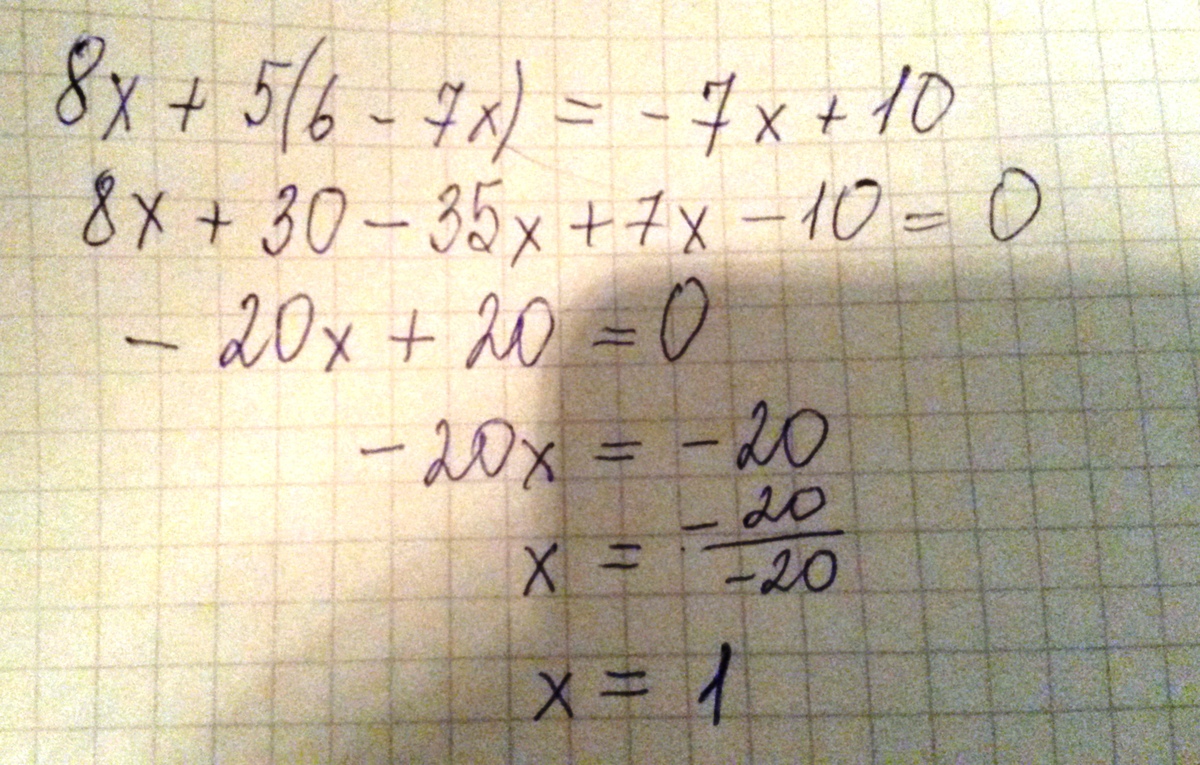 8x + 5(6 - 7x) = -7x + 10
8x + 30 - 35x + 7x - 10 = 0
- 20x + 20 = 0
- 20x = - 20
x = - 20 / -20
x = 1